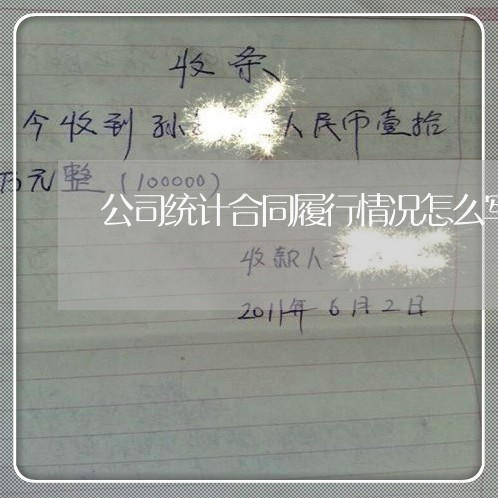 收条
今收到孙 人民币壹拾
万元整(100000)
公司统计合同履行情况怎么写
收款人
2011年6月2日